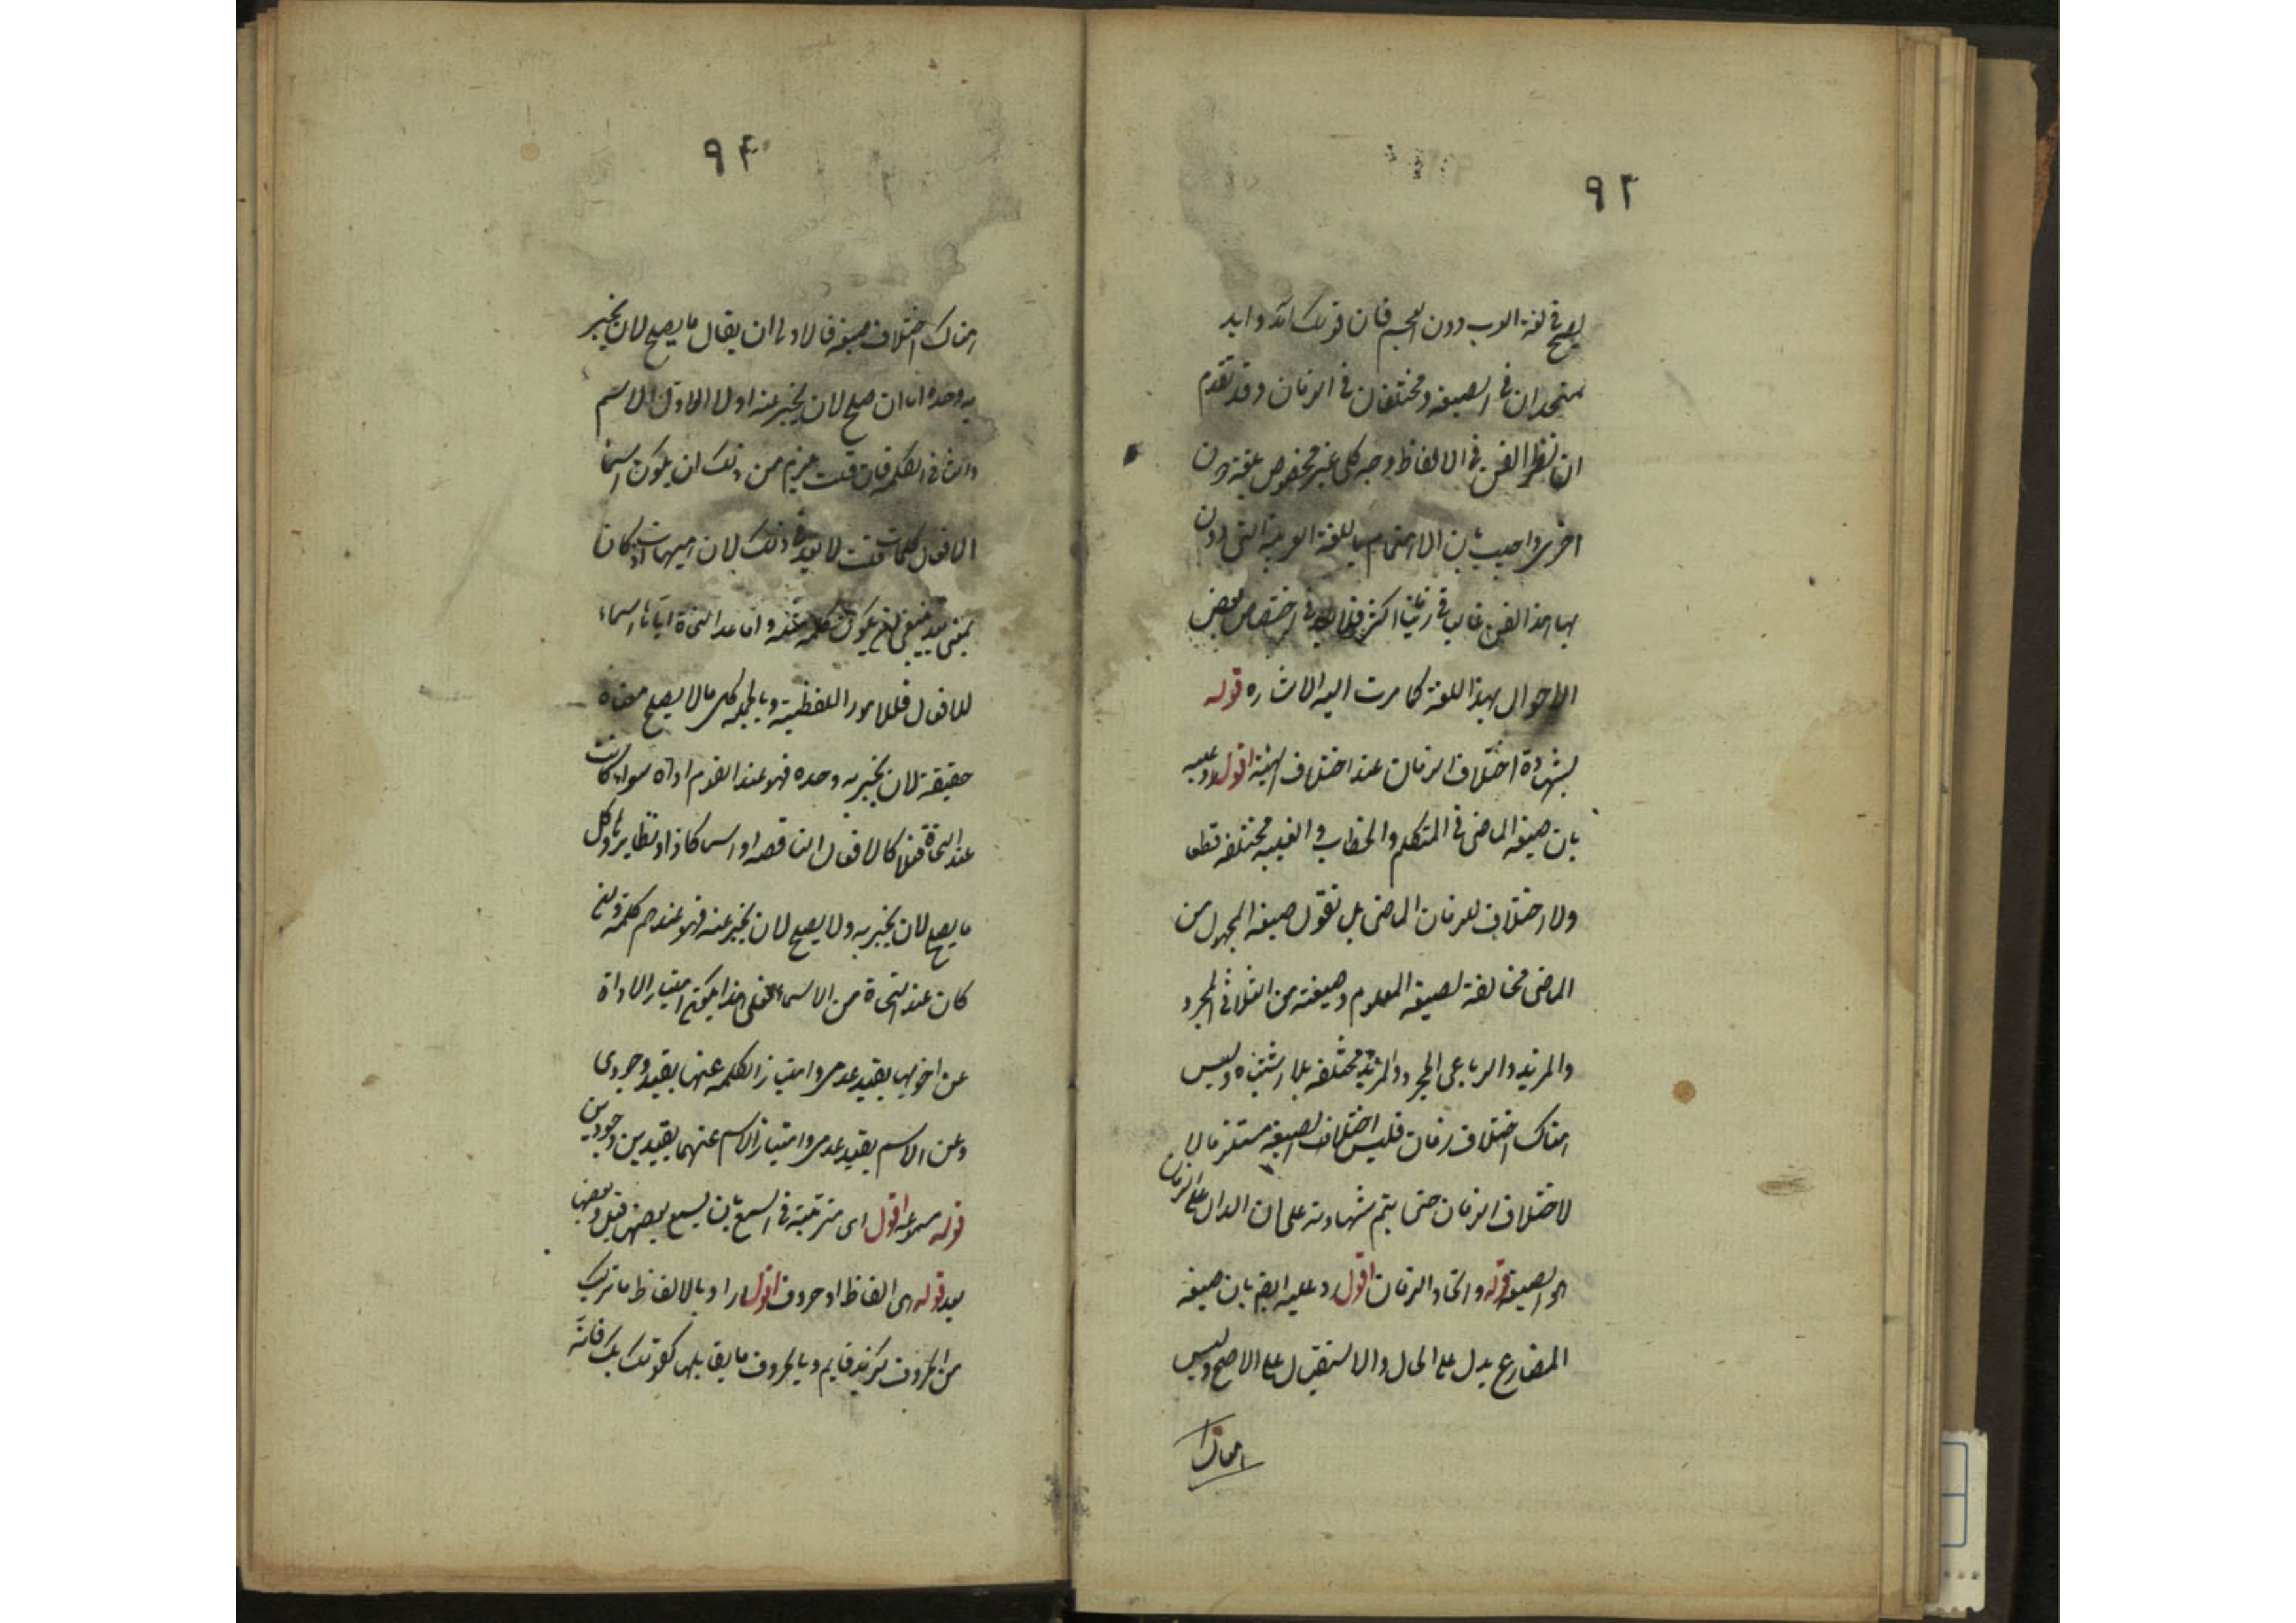 ٩٣
يصح في لغة العرب دون العجم فان قولك آمد وايد
متحدان في الصيغة ومختلفان في الزمان وقد تقدم
ان نظر الفن في الالفاظ وجه كلي غير مخصوص بلغة دون
اخرى واجيب بان الاهتمام باللغة العربية التي دون
بها هذا الفن غالب في زماننا اكثر في اختصاص بعض
الاحوال بهذا اللغة كما مرت اليه الاشاره قوله
بشهادة اختلاف الزمان عند اختلاف الهيئة اقول ورد عليه
بان صيغة الماضي في المتكلم والخطاب والغيبه مختلفه قطعا
ولا اختلاف للزمان الماضي بل نقول صيغة المجهول من
الماضي مخالفة لصيغة المعلوم وصيغته من الثلاثي المجرد
والمزيد والرباعي المجرد والمزيد مختلفه بلا اشتباه وليس
هناك اختلاف زمان فليس اختلاف الصيغة مستلزما
لاختلاف الزمان حتى يتم شهادته على ان الدال على الزمان
هو الصيغة قوله واتحاد الزمان اقول رد عليه ايضا بان صيغة
المضارع يدل على الحال والاستقبال على الاصح وليس
هناك
٩٤
هناك اختلاف صيغة فالاولى ان يقال ما يصلح لان يخبر
به وحده اما ان صلح لان يخبر عنه اولا الاول الاسم
والثاني الكلمه فان قلت يلزم من ذلك ان يكون اسما
الافعال كلمات قلت لا بعد في ذلك لان هيهات اذا كان
بمعنى بعد ينبغي ان يكون كلمة مثله واما عد النحاة اياها اسماء
للافعال فللامور اللفظية وبالجمله كل ما لا يصلح معناه
حقيقة لان يخبر به وحده فهو عند القوم اداة سواء كانت
عند النحاة فعلا كالافعال الناقصه او اسما كاذا ونظايرها وكل
ما يصلح لان يخبر به ولا يصلح لان يخبر عنه فهو عندهم كلمة وان
كان عند النحاة من الاسماء فعلى هذا يكون امتياز الاداة
عن اخويها بقيد عدمي وامتياز الكلمه عنها بقيد وجودي
وعن الاسم بقيد عدمي وامتياز الاسم عنهما بقيدين وجوديين
قوله مسموعه اقول اي مترتبة في السمع بان يسمع بعضها قبل وبعضها
بعد قوله هي الفاظ او حروف اقول اراد بالالفاظ ما تركب
من الحروف كزيد قايم وبالحروف ما يقابلها كقولك بك فانه